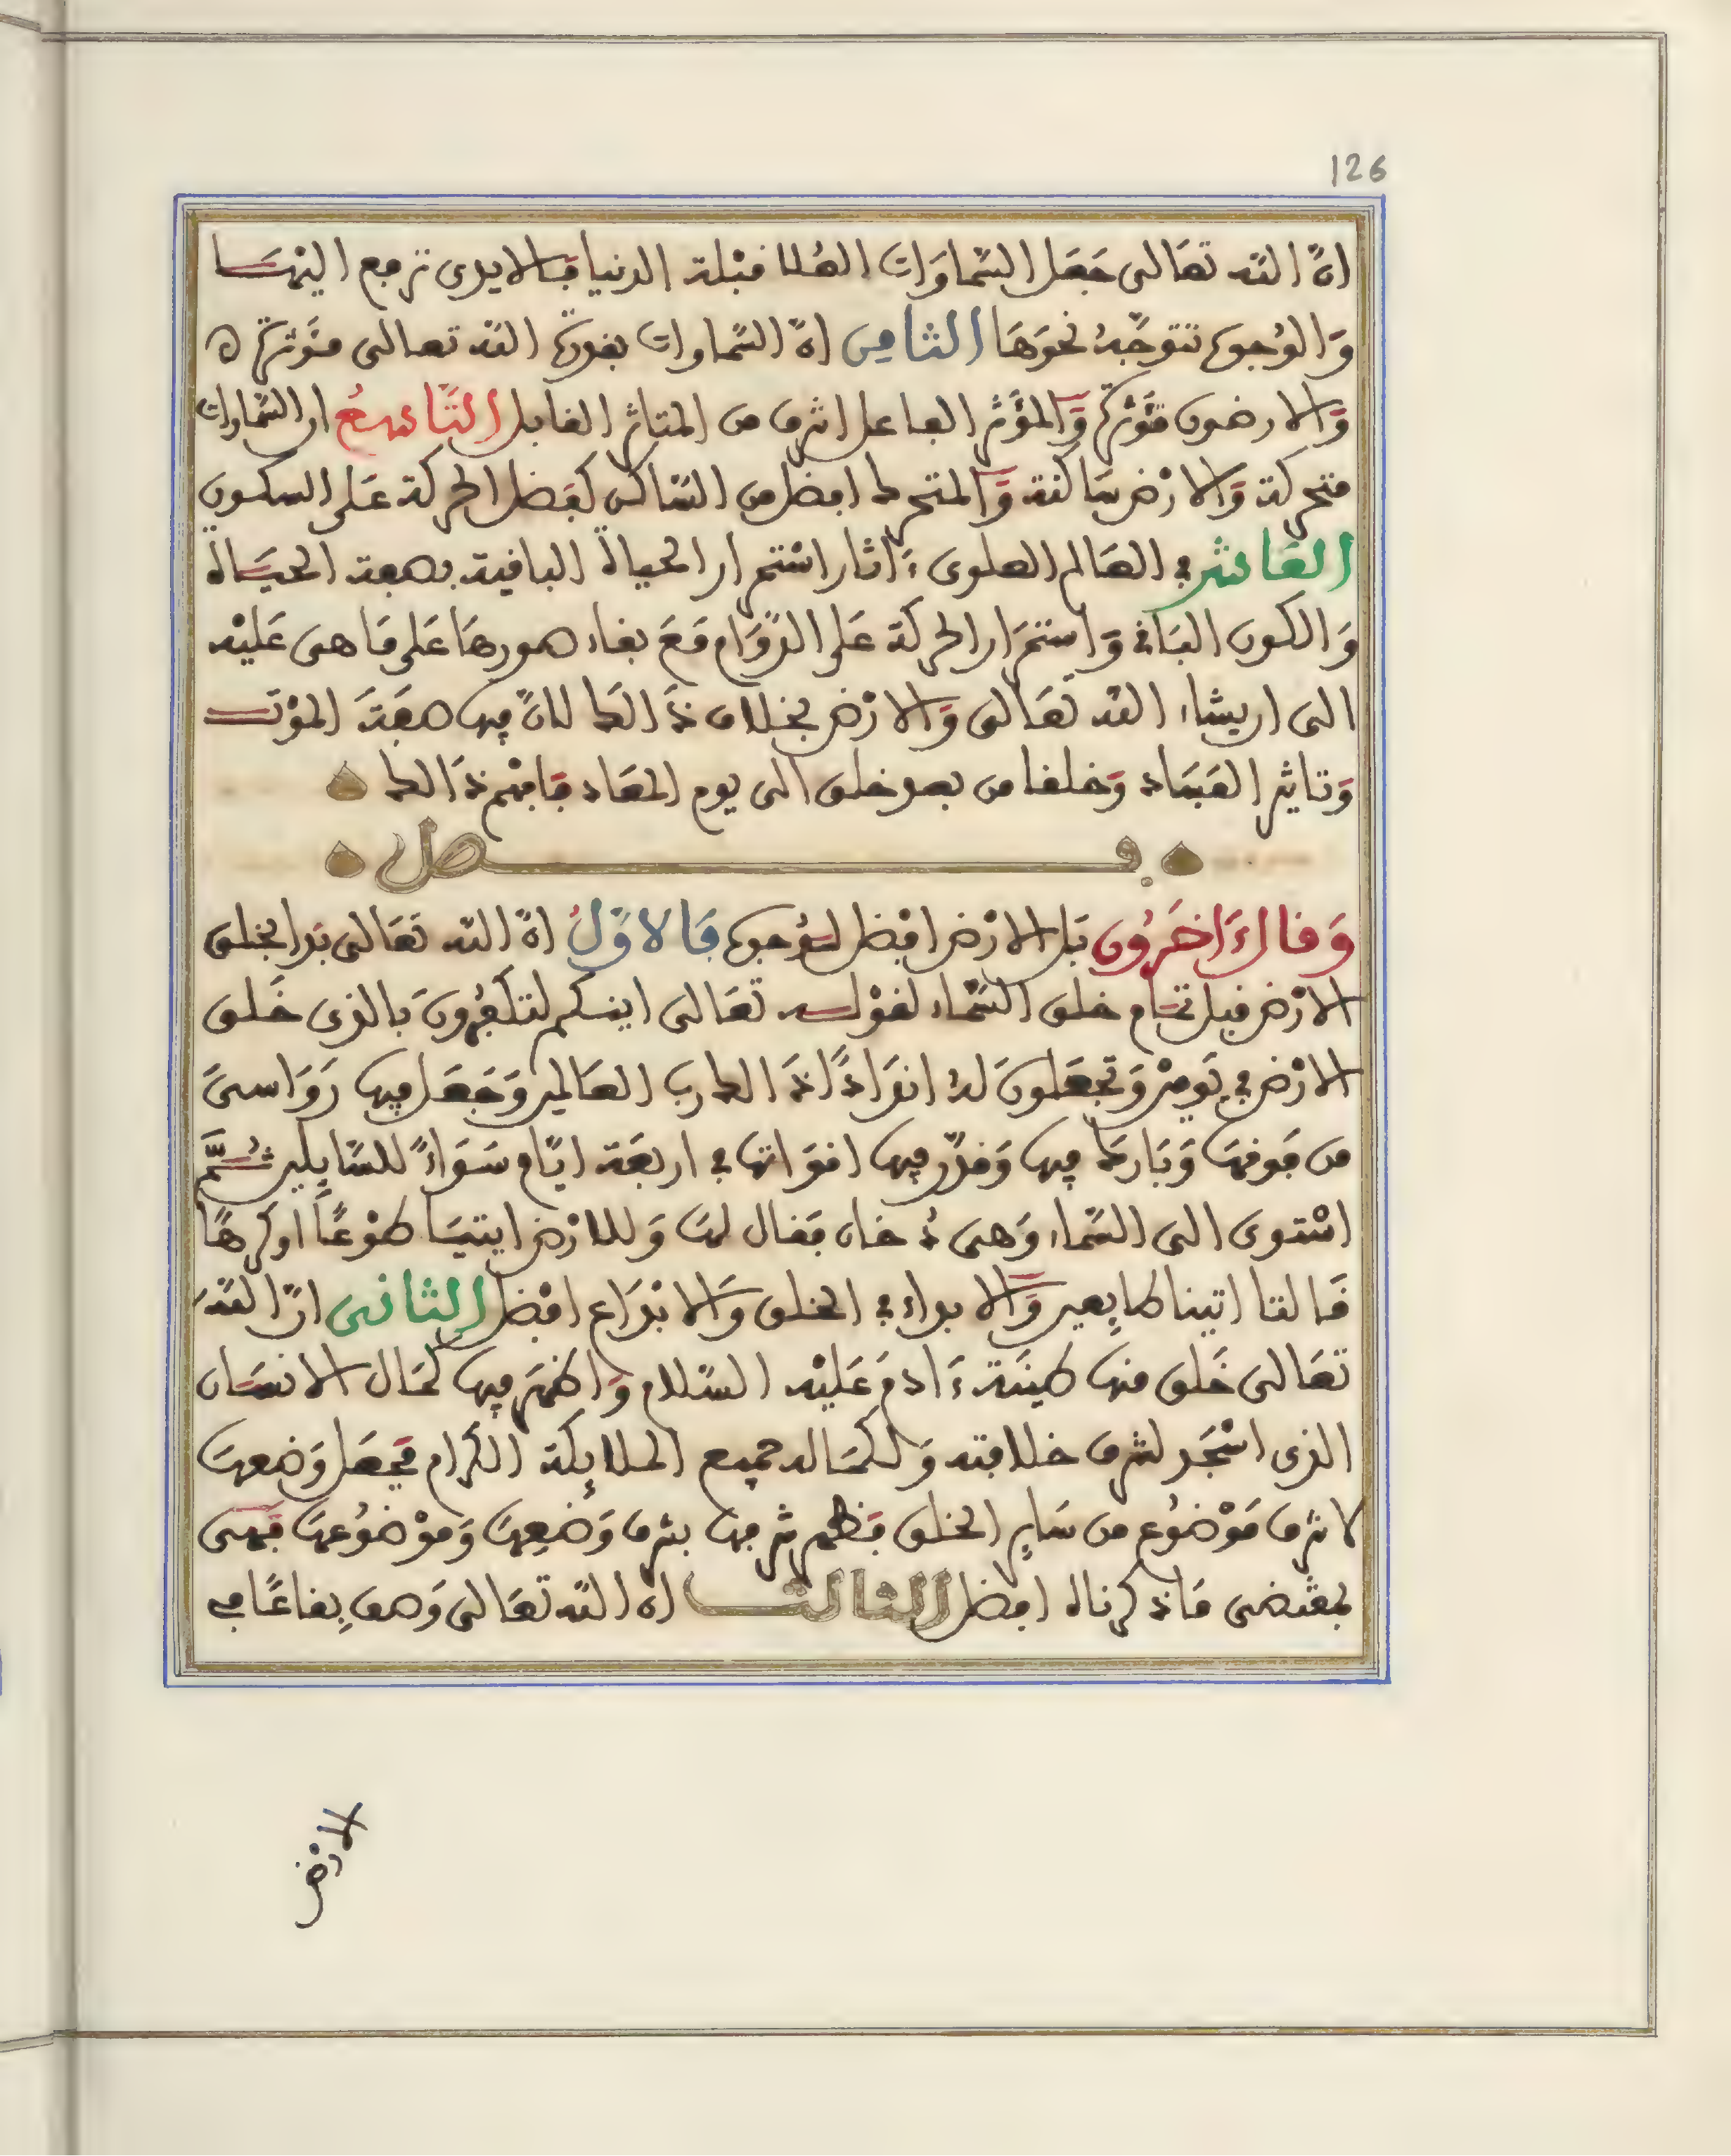 126
ان الله تعالى جعل السماوات العلا قبلة الدنيا فالايدى ترفع اليها
والوجوه تتوجه نحوها الثامن ان السماوات بقوة الله تعالى مؤثرة
والارضون مؤثرة والمؤثر الفاعل اشرف من المتاثر القابل التاسع ان السماوات
متحركة والارض ساكنة والمتحرك افضل من الساكن كفضل الحركة على السكون
العاشر في العالم العلوى ءاثار استمرار الحياة الباقية بصفة الحياة
والكون الباقى واستمرار الحركة على الدوام مع بقاء صورها على ما هى عليه
الى ان يشاء الله تعالى والارض بخلاف ذالك لان فيها صفة الموت
وتاثير الفساد وخلقا من بعد خلق الى يوم المعاد فافهم ذالك
فصل
وقال ءاخرون بل الارض افضل لوجوه فالاول ان الله تعالى بدا بخلق
الارض قبل تمام خلق السماء لقوله تعالى اينكم لتكفرون بالذى خلق
الارض في يومين وتجعلون له اندادا ذالك رب العالمين وجعل فيها رواسى
من فوقها وبارك فيها وقدر فيها اقواتها في اربعة ايام سواء للسايلين ثم
استوى الى السماء وهى دخان فقال لها وللارض ايتيا طوعا او كرها
قالتا اتينا طايعين والابداء في الخلق والابداع افضل الثانى ان الله
تعالى خلق منها طينة ءادم عليه السلام واظهر فيها كمال الانسان
الذى اسجد لشرف خلافته ولكماله جميع الملايكة الكرام فجعل وضعها
لاشرف موضوع من ساير الخلق فظهر شرفها بشرف وضعها وموضوعها فهى
بمقتضى ما ذكرناه افضل الثالث ان الله تعالى وصف بقاعا في
الارض